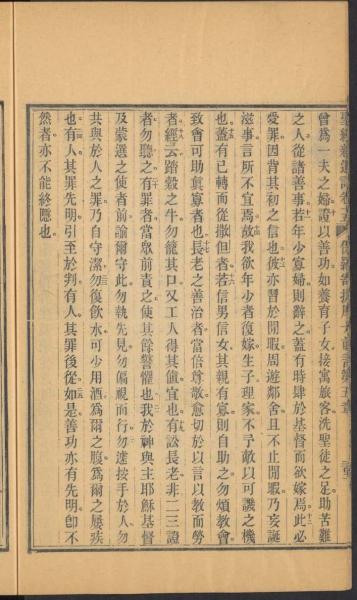 曾爲一夫之婦證以善功如養育子女接寓旅客洗聖徒之足助苦難
之人從諸善事若年少寡婦則辭之蓋有時肆於基督而欲嫁焉此必
受罪因背其初之信也彼亦習於閒暇周遊鄰舍且不止閒暇乃妄誕
滋事言所不宜焉故我欲年少者復嫁生子理家不予敵以可譏之機
也蓋有已轉而從撒但者若信男信女其親有寡則自助之勿煩教會
致會可助眞寡者也長老之善治者當倍尊敬愈切於以言以教而勞
者經云踏穀之牛勿籠其口又工人得其值宜也有訟長老非二三證
者勿聽之有罪者當眾前責之使其餘警懼也我於神與主耶穌基督
及蒙選之使者前諭爾守此勿執先見勿偏視而行勿遽按手於人勿
共與於人之罪乃自守潔勿復飲水可少用酒爲爾之腹爲爾之屢疾
也有人其罪先明引至於判有人其罪後從如是善功亦有先明卽不
然者亦不能終隱也